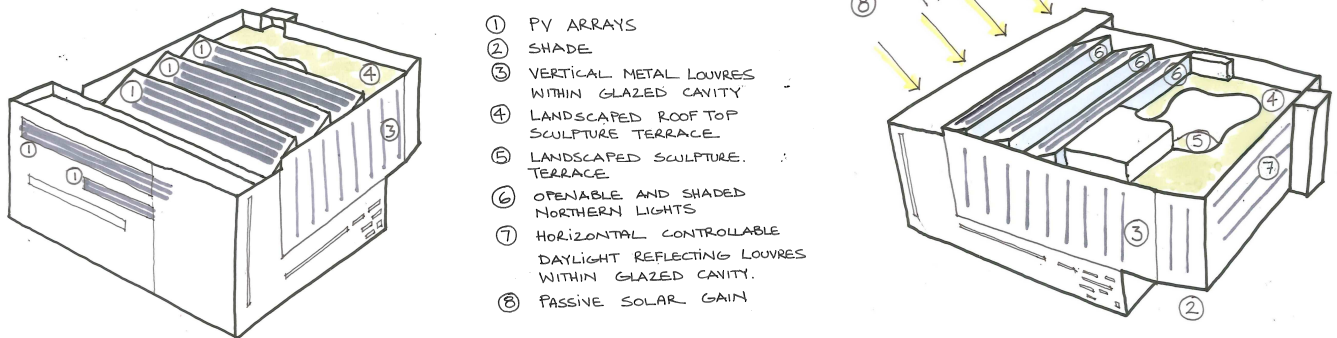 1
1
1
1
1
4
3
① PV ARRAYS
② SHADE
③ VERTICAL METAL LOUVRES
WITHIN GLAZED CAVITY
④ LANDSCAPED ROOF TOP
SCULPTURE TERRACE
⑤ LANDSCAPED SCULPTURE.
TERRACE
⑥ OPENABLE AND SHADED
NORTHERN LIGHTS
⑦ HORIZONTAL CONTROLLABLE
DAYLIGHT REFLECTING LOUVRES
WITHIN GLAZED CAVITY.
⑧ PASSIVE SOLAR GAIN
8
6
6
6
4
5
7
3
2